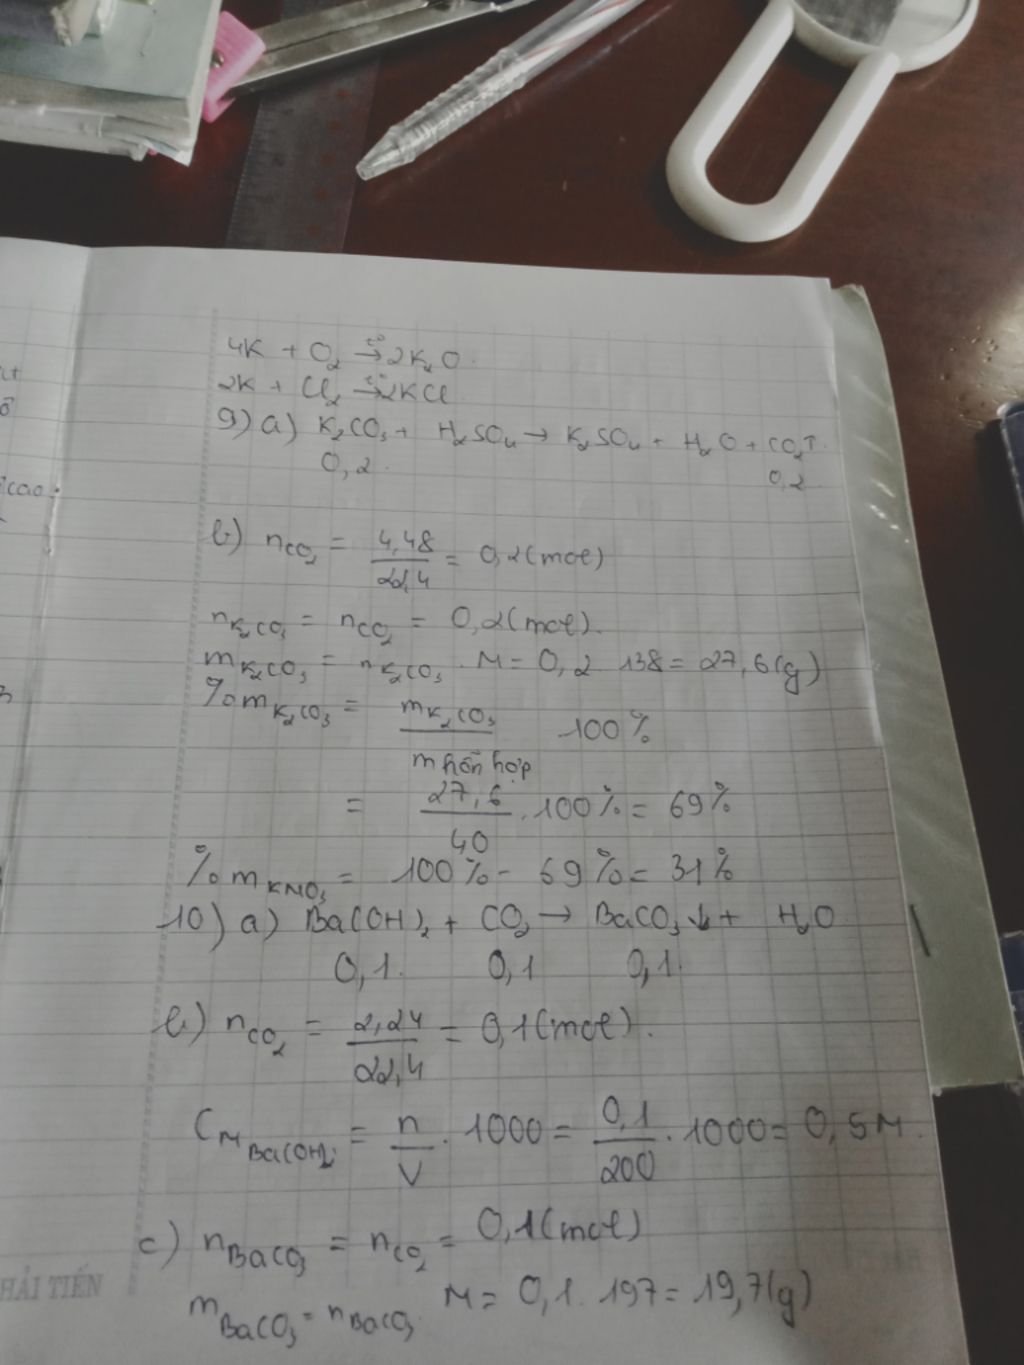 4K + O₂ →t° 2K₂O.
2K + Cl₂ →t° 2KCl
9) a) K₂CO₃ + H₂SO₄ → K₂SO₄ + H₂O + CO₂↑.
0,2. 0,2
cao.
b) nCO₂ = 4,48/22,4 = 0,2 (mol)
nK₂CO₃ = nCO₂ = 0,2 (mol).
mK₂CO₃ = nK₂CO₃ . M = 0,2 138 = 27,6 (g)
%mK₂CO₃ = mK₂CO₃/m hỗn hợp .100%
= 27,6/40 .100% = 69%
%mKNO₃ = 100% - 69% = 31%
10) a) Ba(OH)₂ + CO₂ → BaCO₃ ↓ + H₂O
0,1. 0,1 0,1.
b) nCO₂ = 2,24/22,4 = 0,1 (mol).
CM Ba(OH)₂ = n/V . 1000 = 0,1/200 . 1000 = 0,5M.
c) nBaCO₃ = nCO₂ = 0,1 (mol)
mBaCO₃ = nBaCO₃. M = 0,1. 197 = 19,7 (g)
HẢI TIẾN